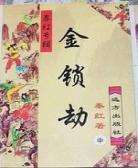 秦红专辑
金锁劫
秦红著
中
远方出版社